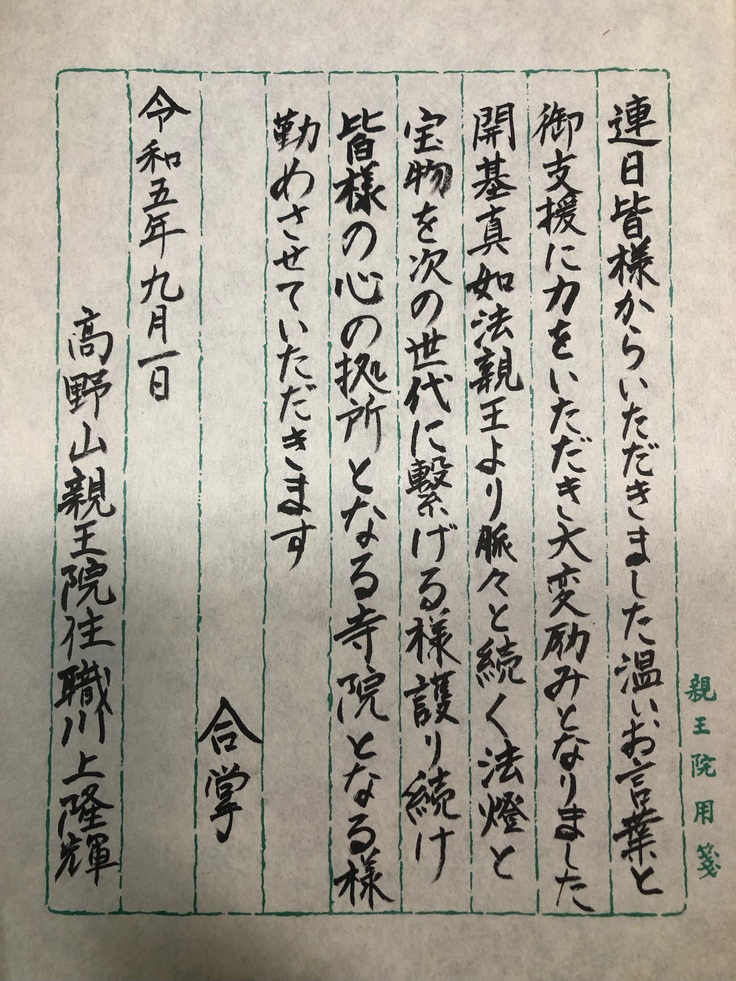 連日皆様からいただきました温いお言葉と
御支援に力をいただき大変励みとなりました
開基真如法親王より脈々と続く法燈と
宝物を次の世代に繋げる様護り続け
皆様の心の拠所となる寺院となる様
勤めさせていただきます
合掌
令和五年九月一日
高野山親王院住職川上隆輝
親王院用箋